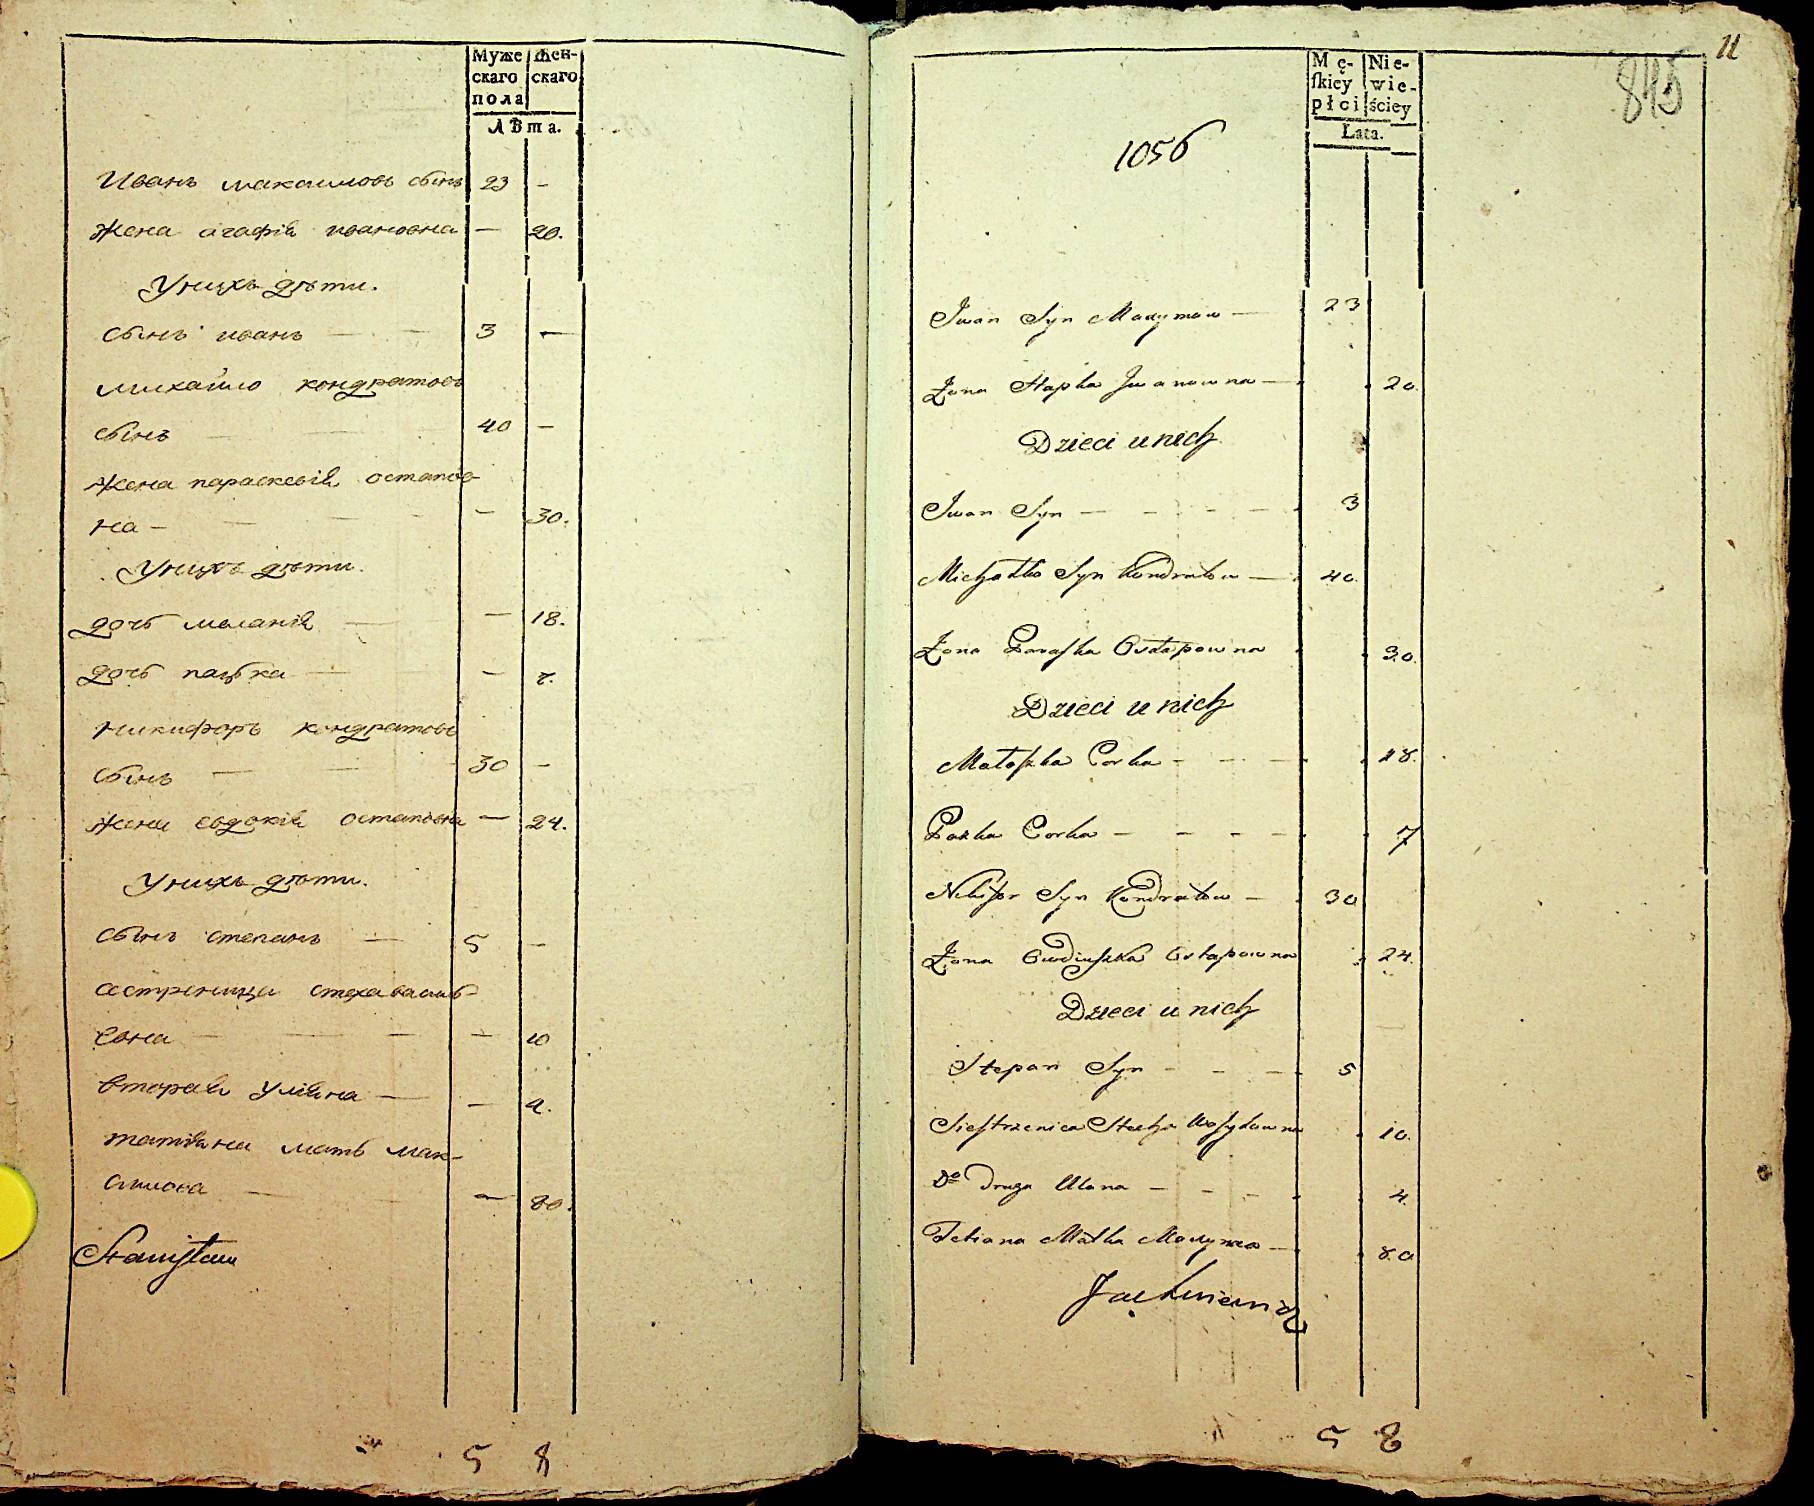 Муже Жен-
скаго скаго
пола
Лѣта.
Иванъ максимовъ сынъ 23 -
жена агафія ивановна - 20.
У нихъ дѣти.
сынъ иванъ - - 3 -
михайло кондратовъ
сынъ - - 40 -
жена параскевія остапов-
на - - - - - 30.
У нихъ дѣти.
дочь маланія - - 18.
дочь пазька - - - 7.
никифоръ кондратовъ
сынъ - - - 30 -
жена евдокія остаповна - 24.
У нихъ дѣти.
сынъ степанъ - 5 -
сестреница стеха василь-
евна - - - - 10
вторая Уліяна - - 4.
татіяна мать мак-
симова - - - 80.
Stanisław
5 8
11
845
Mę- Nie-
ſkiey wie-
płci ściey
Lata.
1056
Jwan Syn Maxymow - 23
Żona Hapka Jwanowna - 20.
Dzieci u nich
Jwan Syn - - - - - 3
Michałko Syn Kondratow - 40.
Żona Paraſka Ostapowna 30.
Dzieci u nich
Małaſzka Corka - - - - 18.
Pazka Corka - - - - - 7
Nikifor Syn Kondratow - 30
Żona Ewdiuſzka Ostapowna 24.
Dzieci u nich
Stepan Syn - - - - 5
Sieſtrzenica Stecha Waſylowna 10.
Do Druga Ulana - - - - 4.
Tetiana Matka Maxyma - 80
Jackiewicz
5 8